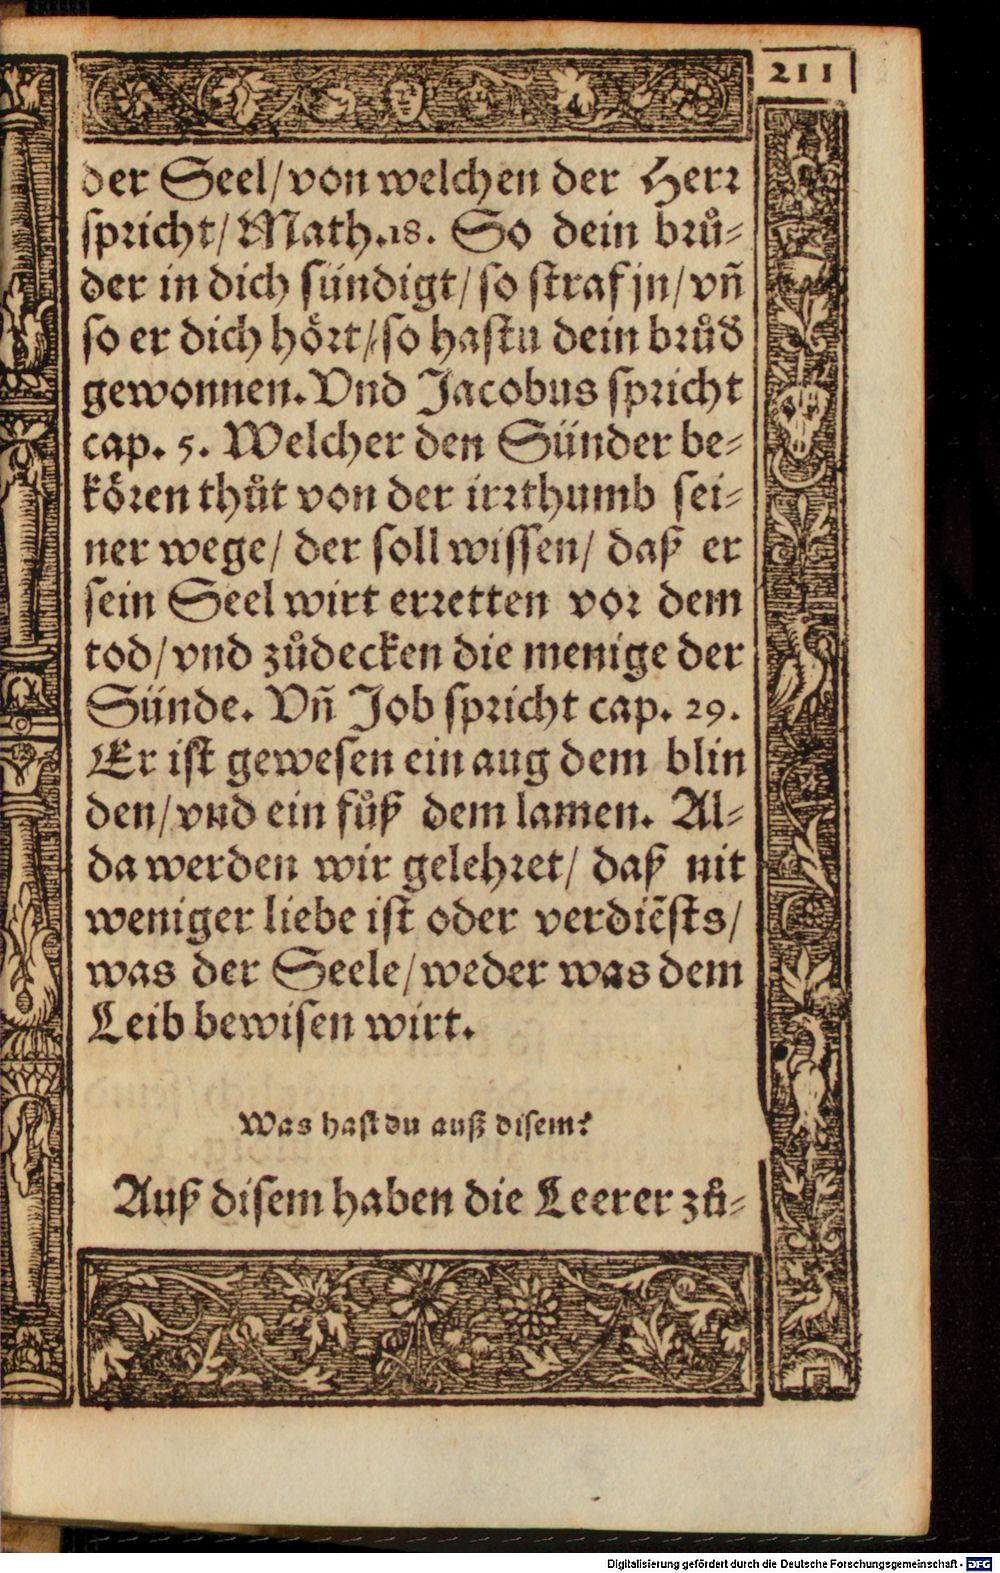 211
der Seel/von welchen der Herr
spricht/Math.18. So dein brů-
der in dich sündigt/so straf jn/vñ
so er dich hört/so hastu dein brůd̃
gewonnen. Vnd Jacobus spricht
cap. 5. Welcher den Sünder be-
kören thůt von der irrthumb sei-
ner wege/ der soll wissen/ daß er
sein Seel wirt erretten vor dem
tod/vnd zůdecken die menige der
Sünde. Vñ Job spricht cap. 29.
Er ist gewesen ein aug dem blin
den/vnd ein fůß dem lamen. Al-
da werden wir gelehret/ daß nit
weniger liebe ist oder verdiẽsts/
was der Seele/weder was dem
Leib bewisen wirt.
Was hast du auß disem?
Auß disem haben die Leerer zů-
Digitalisierung gefördert durch die Deutsche Forschungsgemeinschaft - DFG